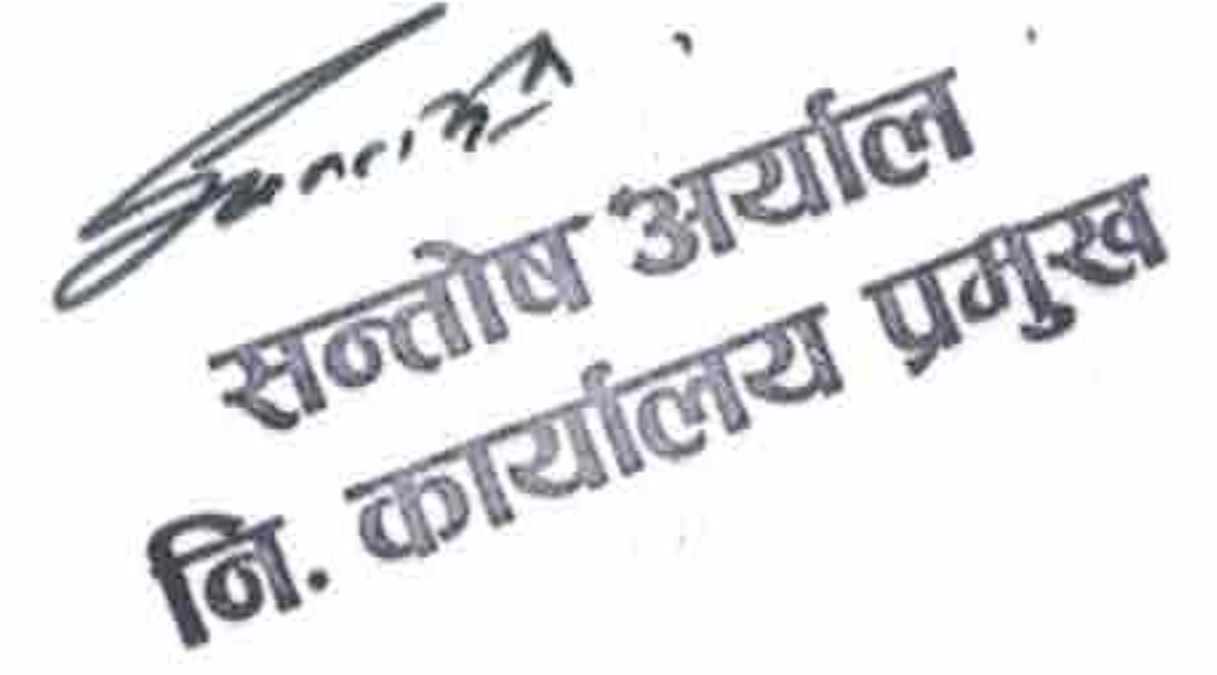 सन्तोष अर्याल
नि. कार्यालय प्रमुख